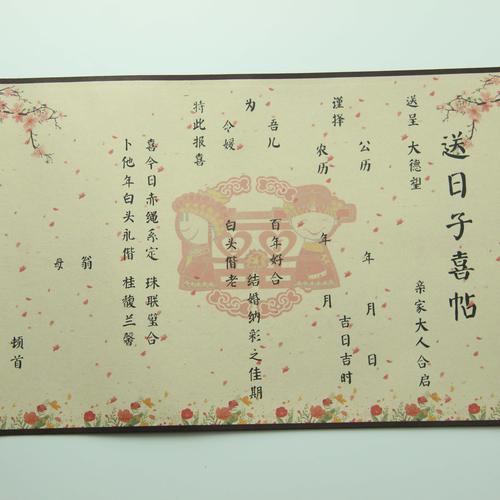 送日子喜帖
送呈 大德望 亲家大人合启
谨择
公历 年 月 日
农历 年 月
吉日吉时
为
吾儿 百年好合
令媛 白头偕老
结婚纳彩之佳期
特此报喜
喜今日赤绳系定 珠联璧合
卜他年白头永偕 桂馥兰馨
翁
母
顿首